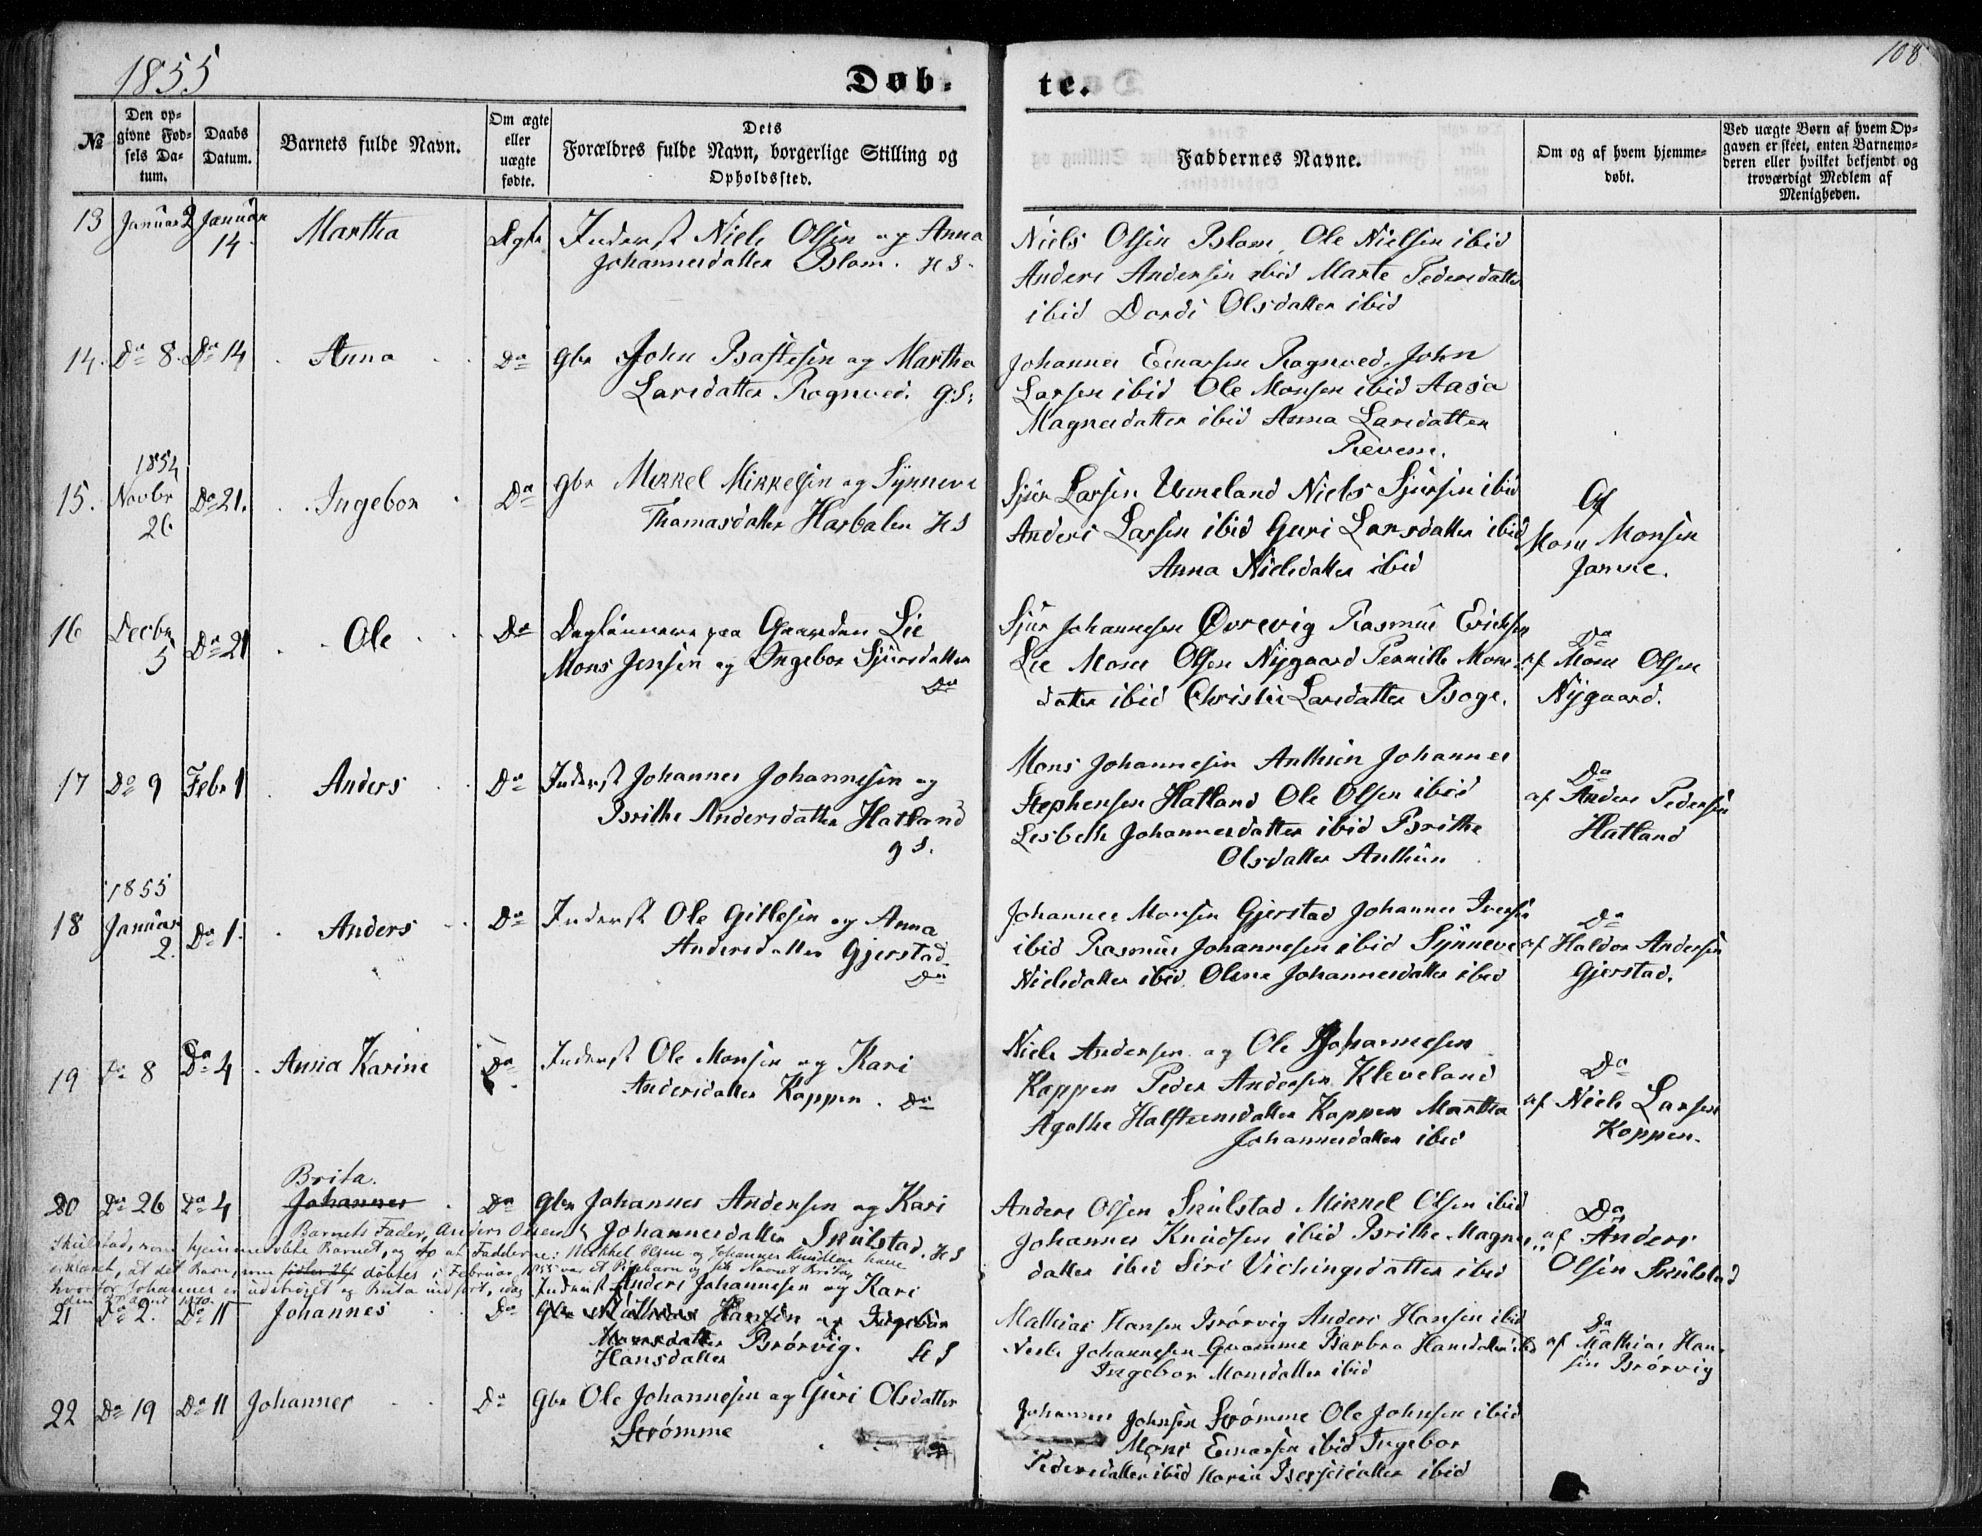 1855
Døb-
te.
108
№
Den op-
givne Fød-
sels Da-
tum.
Daabs
Datum.
Barnets fulde Navn.
Om ægte
eller
uægte
fødte.
Dets
Forældres fulde Navn, borgerlige Stilling og
Opholdssted.
Faddernes Navne.
Om og af hvem hjemme-
døbt.
Ved uægte Børn af hvem Op-
gaven er skeet, enten Barnemo-
deren eller hvilket bekjendt og
troværdigt Medlem af
Menigheden.
13 Januar 2 Januar
14
Martha
Ægte
Inderst Niels Olsen og Anna
Johannesdatter Blom. HS.
Niels Olsen Blom Ole Nielsen ibid
Anders Andersen ibid Marte Pedersdatter
ibid Dordi Olsdatter ibid
14. Do 8. Do 14
Anna
Do
Gbr John Baftesen og Martha
Larsdatter Rognved. G:S:
Johannes Einarsen Rognved. John
Larsen ibid Ole Monsen ibid Aasa
Magnesdatter ibid Anna Larsdatter
Revem.
15.
1854
Novbr
26
Do 21.
Ingebor
Do
Gbr Mekkel Mikkelsen og Synneve
Thomasdatter Hasbalen HS
Sjur Larsen Unneland Niels Sjursen ibid
Anders Larsen ibid Guri Larsdatter ibid
Anna Nielsdatter ibid
Af
Mons Monsen
Janne.
16 Decbr
5
Do 21
Ole
Do
Daglønnere paa Gaarden Lie
Mons Jensen og Ingebor Sjursdatter
Do
Sjur Johannesen Øvrevig Rasmus Ericksen
Lie Mons Olsen Nygaard Pernille Mons-
datter ibid Christie Larsdatter Boge.
Do
af Mons Olsen
Nygaard.
17 Do 9 Febr 1
Anders
Do
Inderst Johannes Johannesen og
Brithe Andersdatter Hatland
GS.
Mons Johannesen Anthun Johannes
Stephensen Hatland Ole Olsen ibid
Lesbeth Johannesdatter ibid Brithe
Olsdatter Anthun
Do
af Anders Pedersen
Hatland
18
1855
Januar
2.
Do 1.
Anders
Do
Inderst Ole Gitlesen og Anna
Andersdatter Gjerstad.
Do
Johannes Monsen Gjerstad Johannes Iversen
ibid Rasmus Johannesen ibid Synneve
Nielsdatter ibid Olena Johannesdatter ibid
Do
af Haldor Andersen
Gjerstad.
19 Do 8 Do 4
Anna Karine
Do
Inderst Ole Monsen og Kari
Andersdatter Koppen. Do
Niels Andersen og Ole Johannesen
Koppen Peder Andersen Kleveland
Agathe Halsteinsdatter Koppen Martha
Johannesdatter ibid
Do
af Niels Larsen
Koppen.
20 Do 26 Do 4
Brita.
Johannes
Do
Gbr Johannes Andersen og Kari
Johannesdatter Skulstad. HS
Anders Olsen Skulstad Mikkel Olsen ibid
Johannes Knudsen ibid Brithe Magnes-
datter ibid Siri Vichingsdatter ibid
Do
af Anders
Olsen Skulstad
Barnets Fader, Anders Olsen
Skulstad, som hjemmedøbte Barnet, og to af Fadderne: Mikkel Olsen og Johannes Knudsen, have
erklæret, at det Barn, som døbtes i Februar 1855 var et Pigebarn og fik Navnet Brita,
hvorfor Johannes er udstrøget og Brita indført, idag
1870.
21 Do 2. Do 11
Johannes
Do
Inderst Anders Johannesen og Kari
Gbr Mathias Hansen og Ingebor
Monsdatter Brørvig. HS
Hansdatter
Mathias Hansen Brørvig Anders Hansen ibid
Neels Johannesen Qvamme Barbra Hansdatter ibid
Ingebor Monsdatter ibid
Do
af Mathias Han-
sen Brørvig
22 Do 19 Do 11
Johannes
Do
Gbr Ole Johannesen og Guri Olsdatter
Strømme
Johannes Johnsen Strømme Ole Johnsen ibid
Mons Einarsen ibid Ingebor
Pedersdatter ibid Maria Bessesdatter ibid